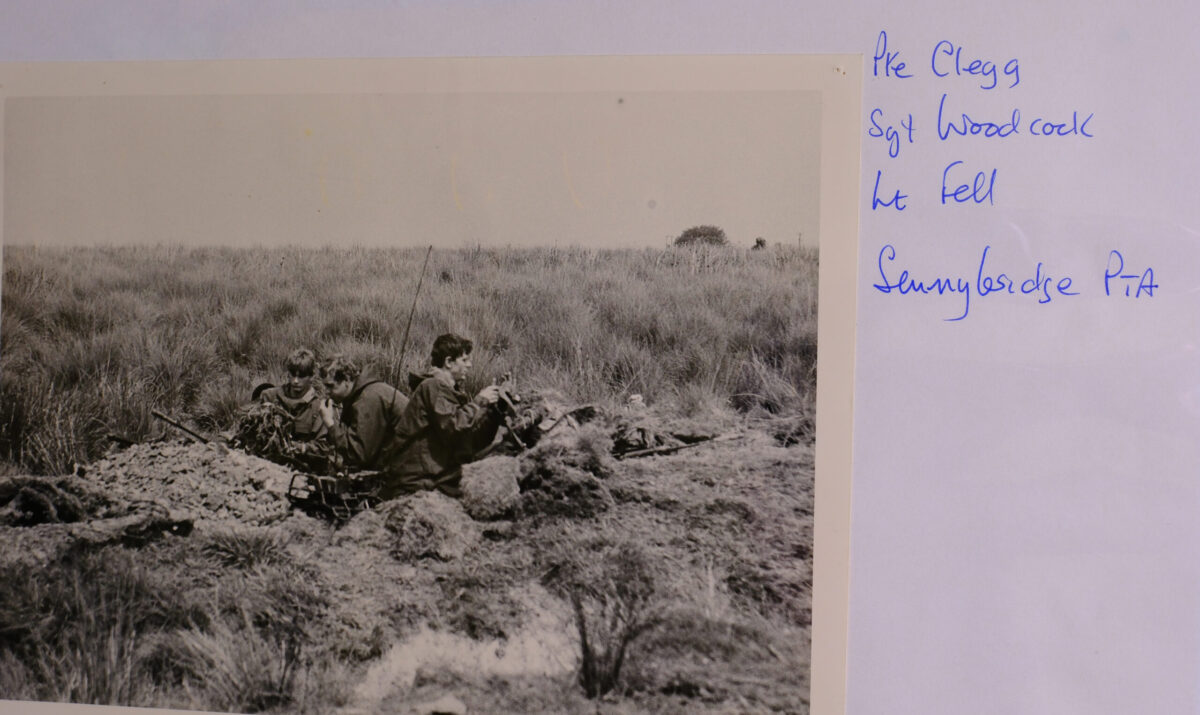 Pte Clegg
Sgt Woodcock
Lt Fell
Sennybridge PTA